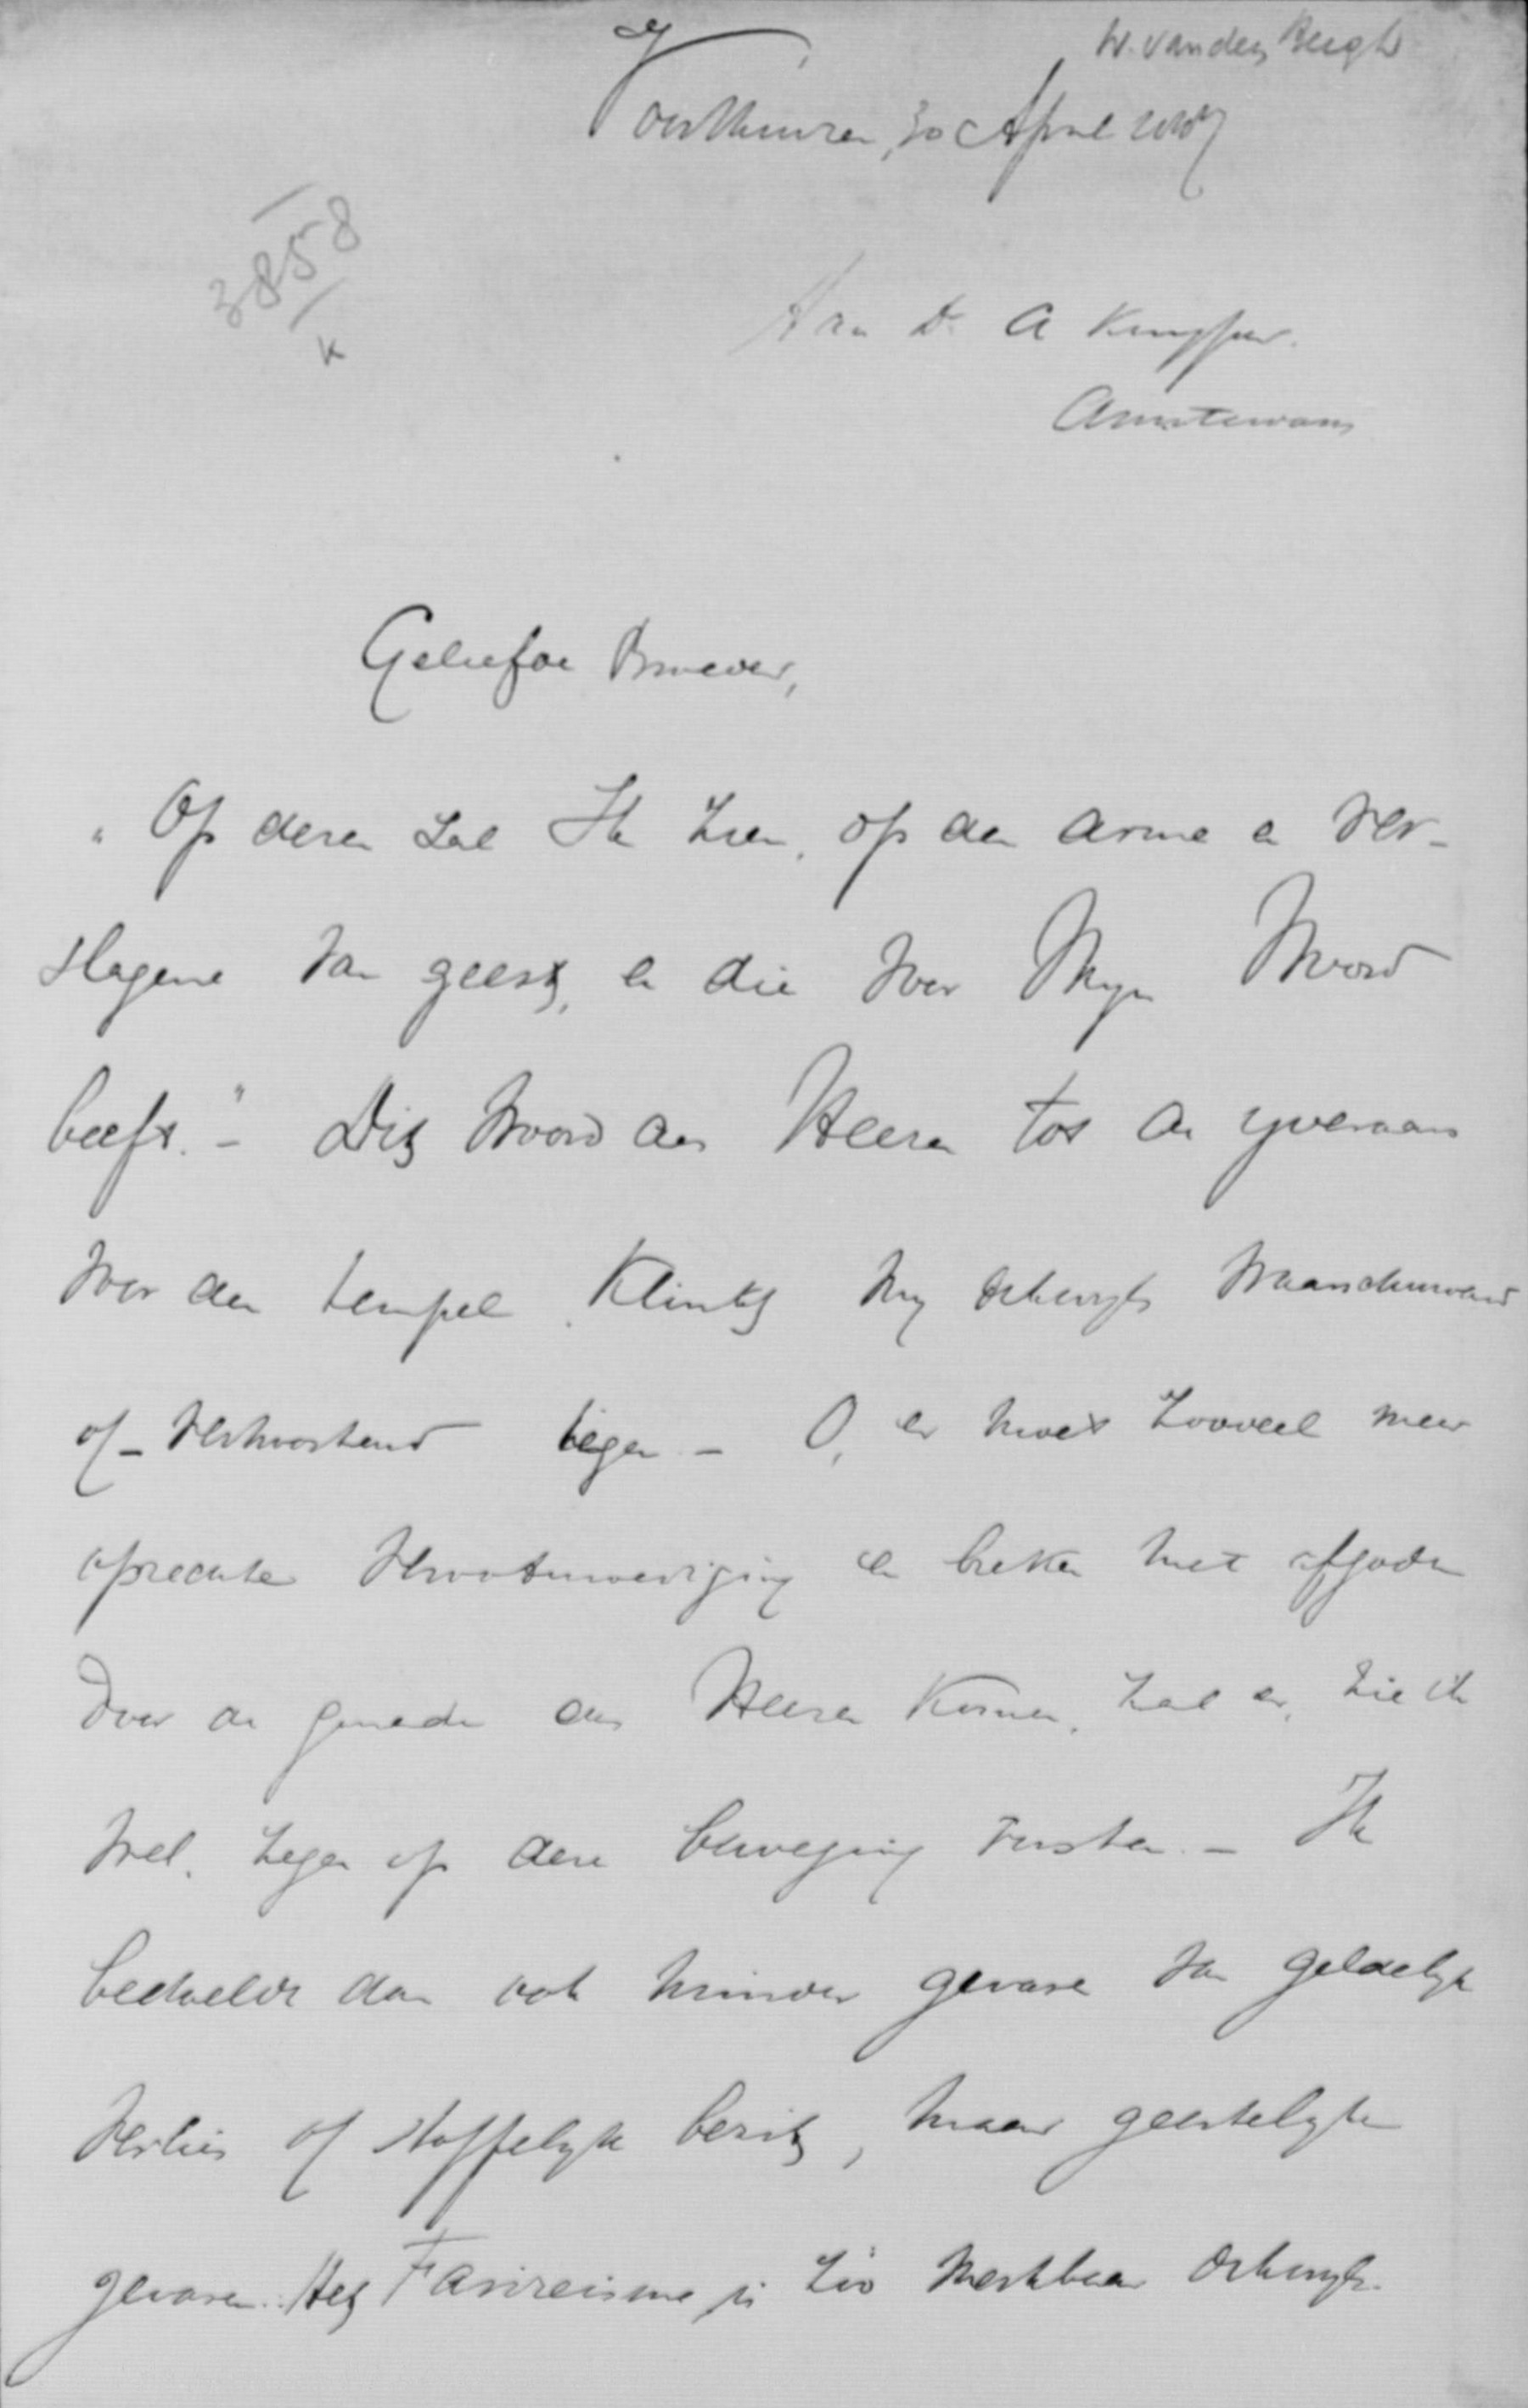 W. van den Bergh
Voorthuizen, 30 April 1887
3858
K
Aan Dr. A Kuyper.
Amsterdam
Geliefde Broeder,
"Op dezen zal Ik zien, op den arme en ver-
slagene van geest, en die voor Mijn Woord
beeft." - Dit woord des Heeren tot de ijveraars
voor den tempel klinkt my telkens waarschuwend
of - vertroostend tegen - O, er moet zooveel meer
oprechte verootmoediging en breken met afgoden
door de genade des Heeren komen, zal er, zie ik
wel, zegen op deze beweging rusten. - Ik
bedoelde dan ook minder gevaar van geldelyk
verlies of stoffelyk bezit, maar geestelyke
gevaren. Het Farizeisme is zoo merkbaar